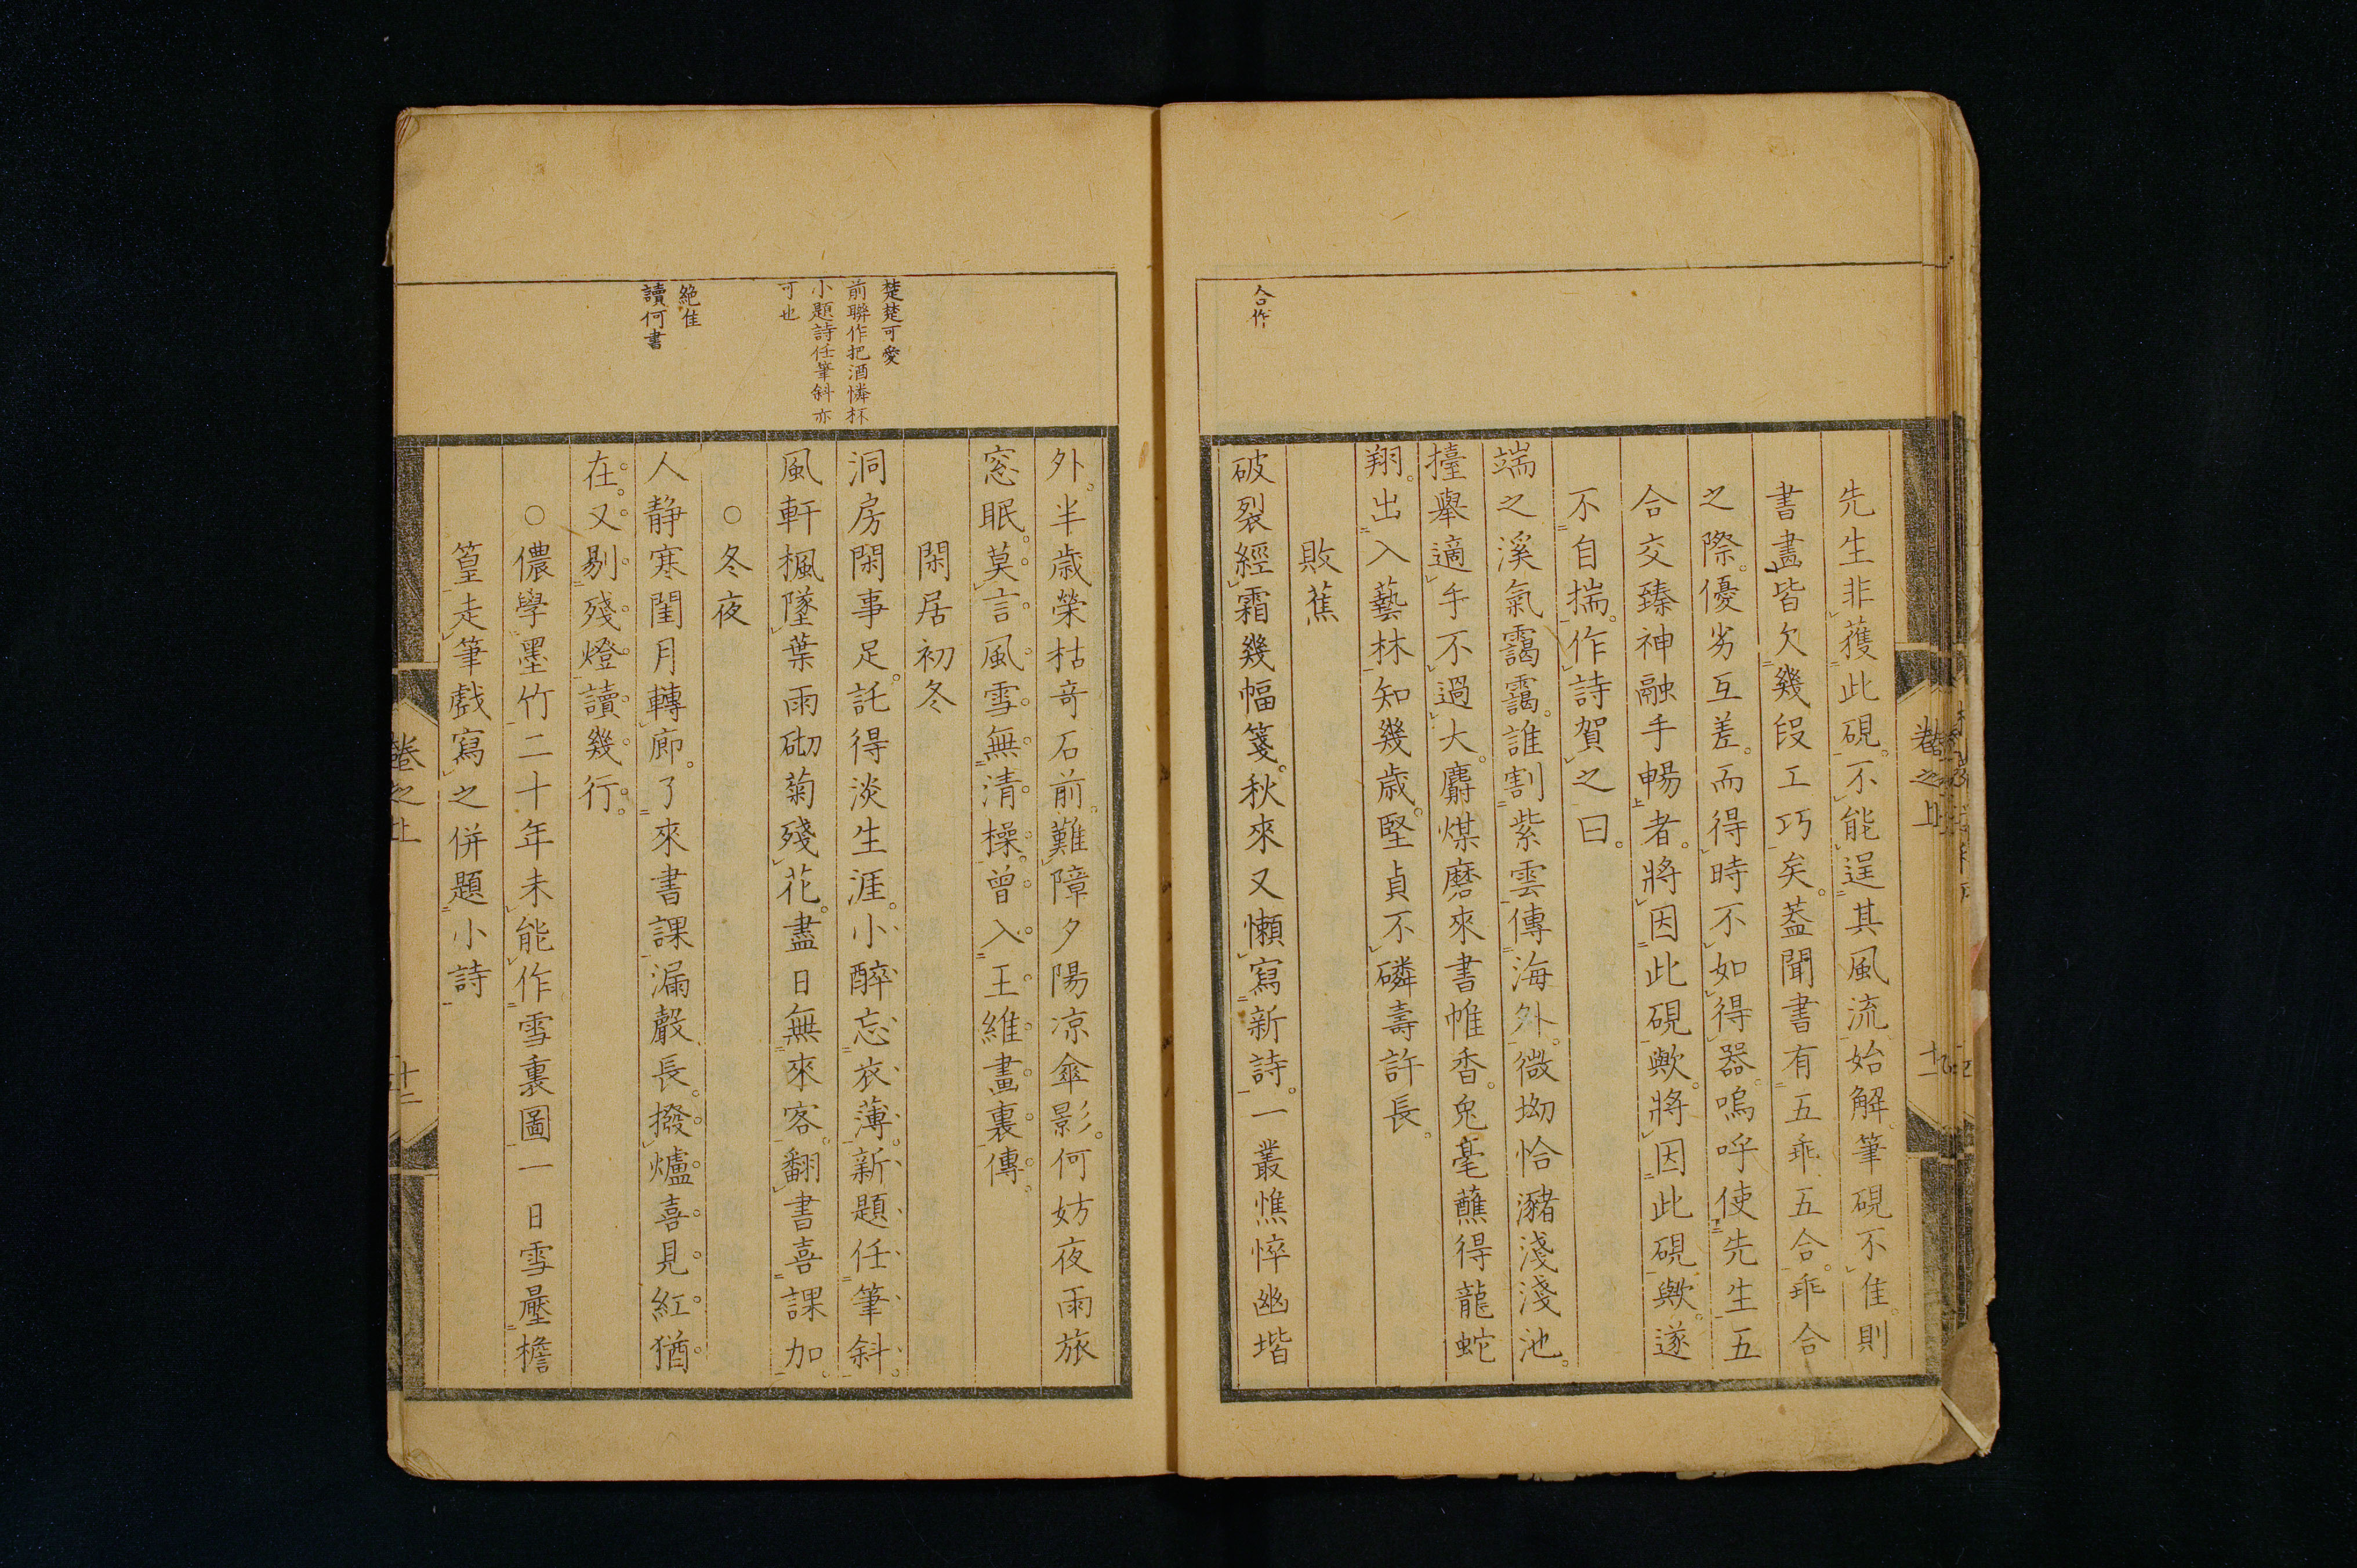 先生非獲此硯。不能逞其風流。始解筆硯不佳。則
書畫皆欠幾段工巧矣。蓋聞書有五乖五合。乖合
之際。優劣互差。而得時不如得器。嗚呼使先生五
合交臻神融手暢者。將因此硯歟。將因此硯歟。遂
不自揣。作詩賀之曰。
端之溪氣靄靄。誰割紫雲傳海外。微坳恰瀦淺淺池。
擡舉適手不過大。麝煤磨來書帷香。兔毫蘸得龍蛇
翔。出入藝林知幾歳。堅貞不磷壽許長。
敗蕉
合作
破裂經霜幾幅箋。秋來又懶寫新詩。一叢憔悴幽堦
外。半歳榮枯竒石前。難障夕陽凉傘影。何妨夜雨旅
窓眠。莫言風雪無清操。曾入王維畫裏傳。
閑居初冬
楚楚可愛
前聯作把酒憐杯
小題詩任筆斜亦
可也
洞房閑事足。託得淡生涯。小醉忘衣薄。新題任筆斜。
風軒楓墜葉雨砌菊殘花。盡日無來客。翻書喜課加。
○冬夜
絶佳
讀何書
人静寒閨月轉廊。了來書課漏聲長。撥爐喜見紅猶
在。又剔殘燈讀幾行。
○儂學墨竹二十年未能作雪裏圖一日雪壓檐
篁走筆戲寫之併題小詩
卷之上
十二